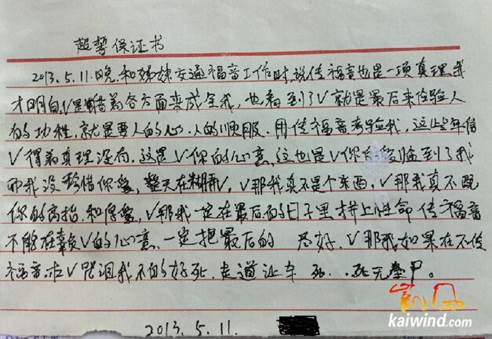 起誓保证书
2013.5.11.晚.和姊妹交通福音工作时,说传福音也是一项真理,我
才明白,V是借着各方面来成全我,也看到了V就是最后来检验人
的功性,就是要人的心,人的顺服.用传福音考验我,这些年信
V得着真理没有,这是V你的心意,这也是V你来临到了我
而我没珍惜你爱,整天在糊弄,V那我真不是个东西,V那我真不配
你的高抬和厚爱,V那我一定在最后的日子里拼上性命传福音
不能在辜负V的心意.一定把最后的 尽好,V那我如果在不传
福音求V咒诅我不的好死,走道让车 死无
2013.5.11.
凯风
kaiwind.com